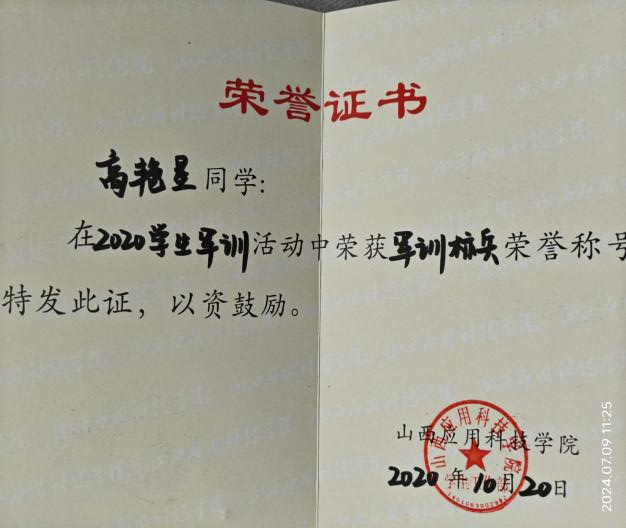 荣誉证书
高艳星同学:
在2020学生军训活动中荣获军训标兵荣誉称号
特发此证，以资鼓励。
山西应用科技学院
2020年10月20日
山西应用科技学院
学生工作部
2024.07.09 11:25